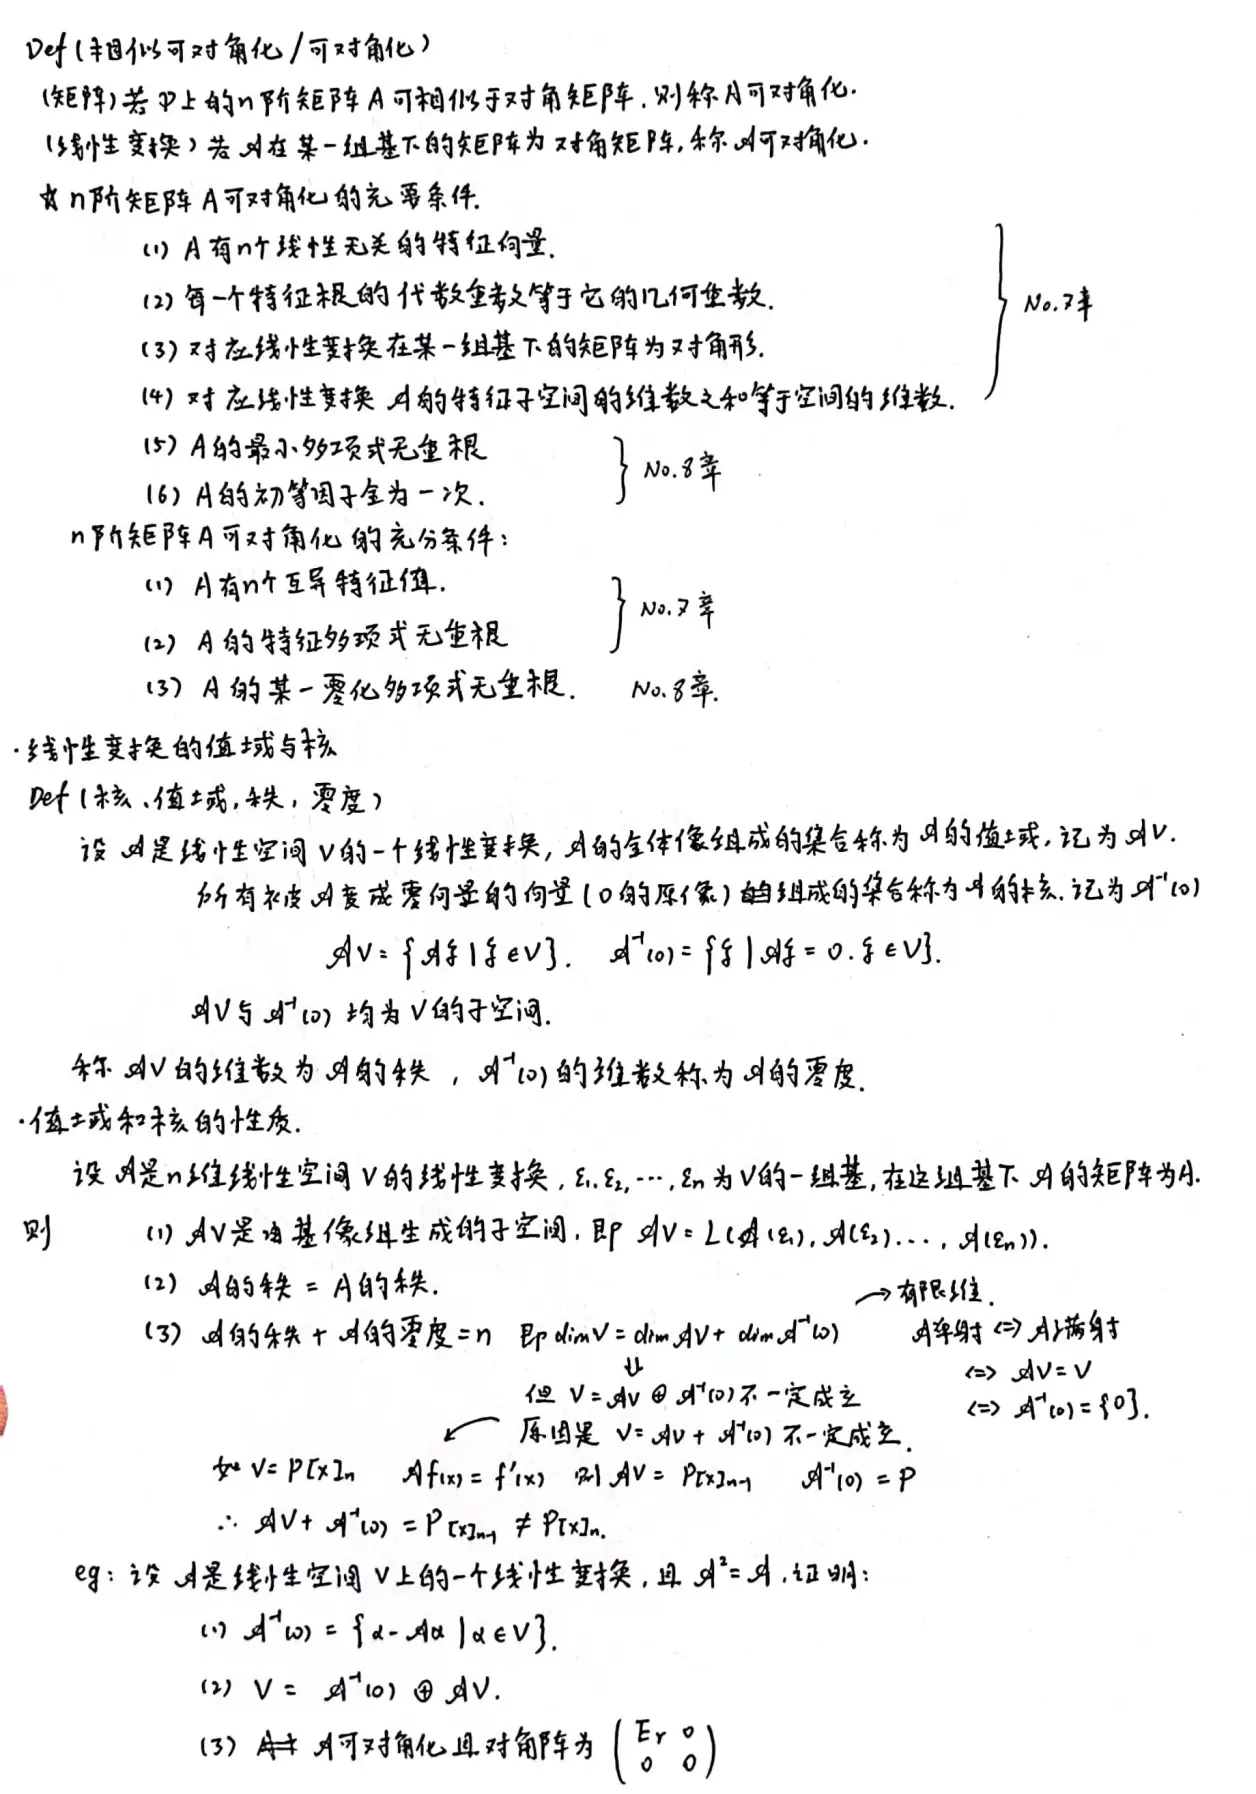 Def(相似可对角化/可对角化)
(矩阵)若P上的n阶矩阵A可相似于对角矩阵,则称A可对角化.
(线性变换)若𝒜在某一组基下的矩阵为对角矩阵,称𝒜可对角化.
☆ n阶矩阵A可对角化的充要条件.
(1) A有n个线性无关的特征向量.
(2) 每一个特征根的代数重数等于它的几何重数.
(3) 对应线性变换在某一组基下的矩阵为对角形.
(4) 对应线性变换𝒜的特征子空间的维数之和等于空间的维数.
No.7章
(5) A的最小多项式无重根
(6) A的初等因子全为一次.
No.8章
n阶矩阵A可对角化的充分条件:
(1) A有n个互异特征值.
(2) A的特征多项式无重根
No.7章
(3) A的某一零化多项式无重根. No.8章.
·线性变换的值域与核
Def(核、值域,秩,零度)
设𝒜是线性空间V的一个线性变换,𝒜的全体像组成的集合称为𝒜的值域,记为𝒜V.
所有被𝒜变成零向量的向量(0的原像)组成的集合称为𝒜的核.记为𝒜⁻¹(0)
𝒜V={𝒜ξ|ξ∈V}. 𝒜⁻¹(0)={ξ|𝒜ξ=0.ξ∈V}.
𝒜V与𝒜⁻¹(0)均为V的子空间.
称𝒜V的维数为𝒜的秩,𝒜⁻¹(0)的维数称为𝒜的零度.
·值域和核的性质.
设𝒜是n维线性空间V的线性变换,ε₁,ε₂,…,εn为V的一组基,在这组基下𝒜的矩阵为A.
则 (1) 𝒜V是由基像组生成的子空间,即𝒜V=L(𝒜(ε₁),𝒜(ε₂)…,𝒜(εn)).
(2) 𝒜的秩=A的秩.
→有限维.
(3) 𝒜的秩+𝒜的零度=n 即dimV=dim𝒜V+dim𝒜⁻¹(0) 𝒜单射⇔𝒜满射
⇓
⇔ 𝒜V=V
但 V=𝒜V⊕𝒜⁻¹(0)不一定成立
⇔ 𝒜⁻¹(0)={0}.
原因是 V=𝒜V+𝒜⁻¹(0)不一定成立.
如V=P[x]n 𝒜f(x)=f'(x) 则𝒜V=P[x]n-1 𝒜⁻¹(0)=P
∴ 𝒜V+𝒜⁻¹(0)=P[x]n-1≠P[x]n.
eg: 设𝒜是线性空间V上的一个线性变换,且𝒜²=𝒜,证明:
(1) 𝒜⁻¹(0)={α-𝒜α|α∈V}.
(2) V=𝒜⁻¹(0)⊕𝒜V.
(3) 𝒜可对角化且对角阵为(Er 0
0 0)